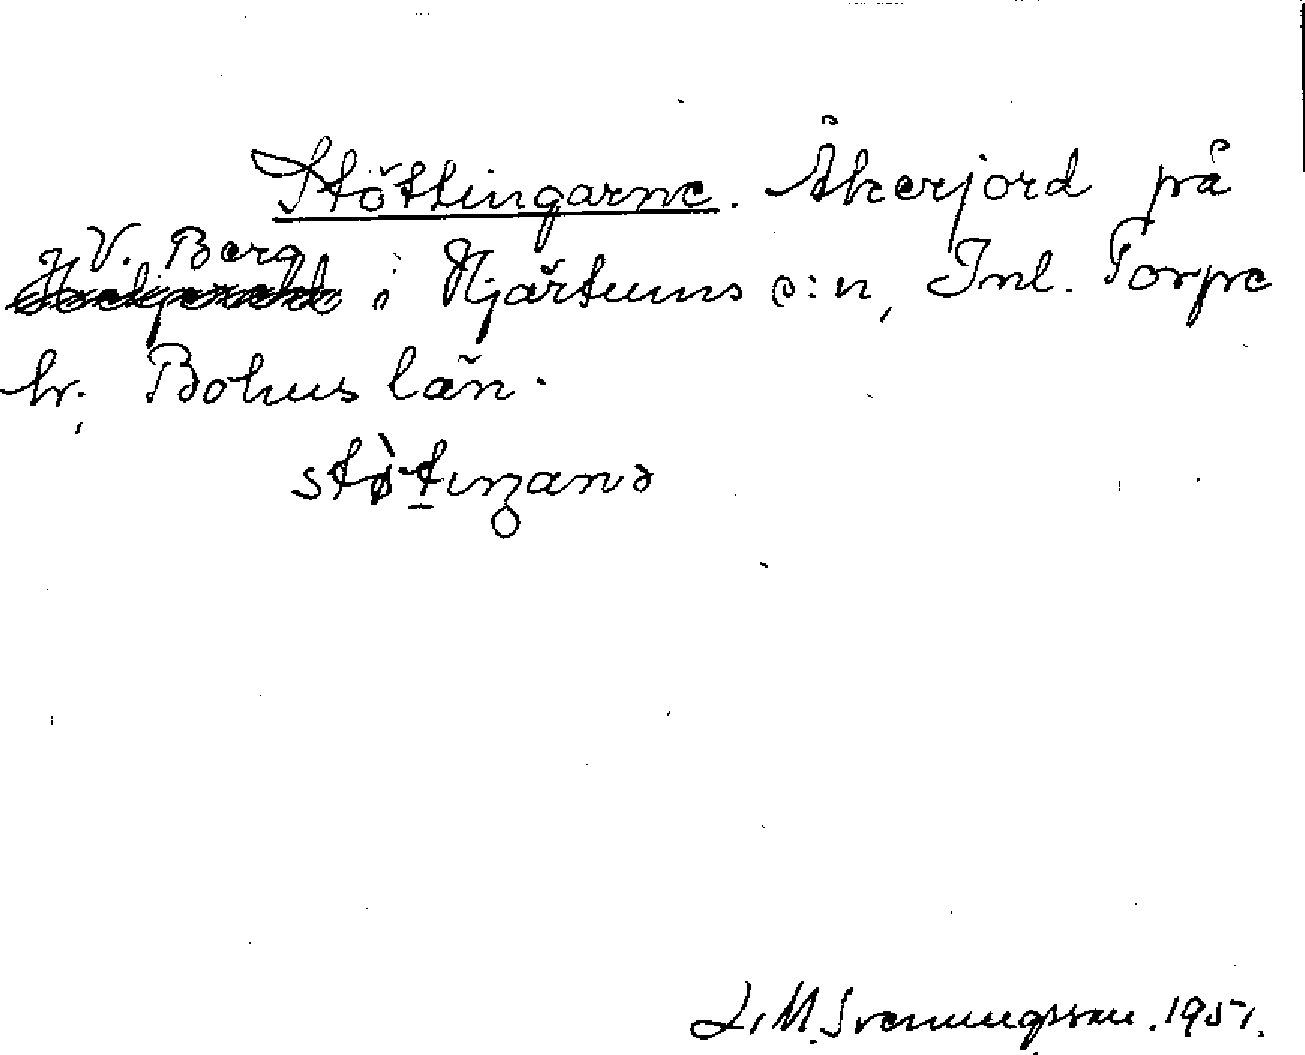 Stöttingarne. Åkerjord på
V. Berg i Hjärtums s:n, Inl. Torpe
hr. Bohus län.
stø̀tıŋanə
L. M. Svenungsson. 1951.